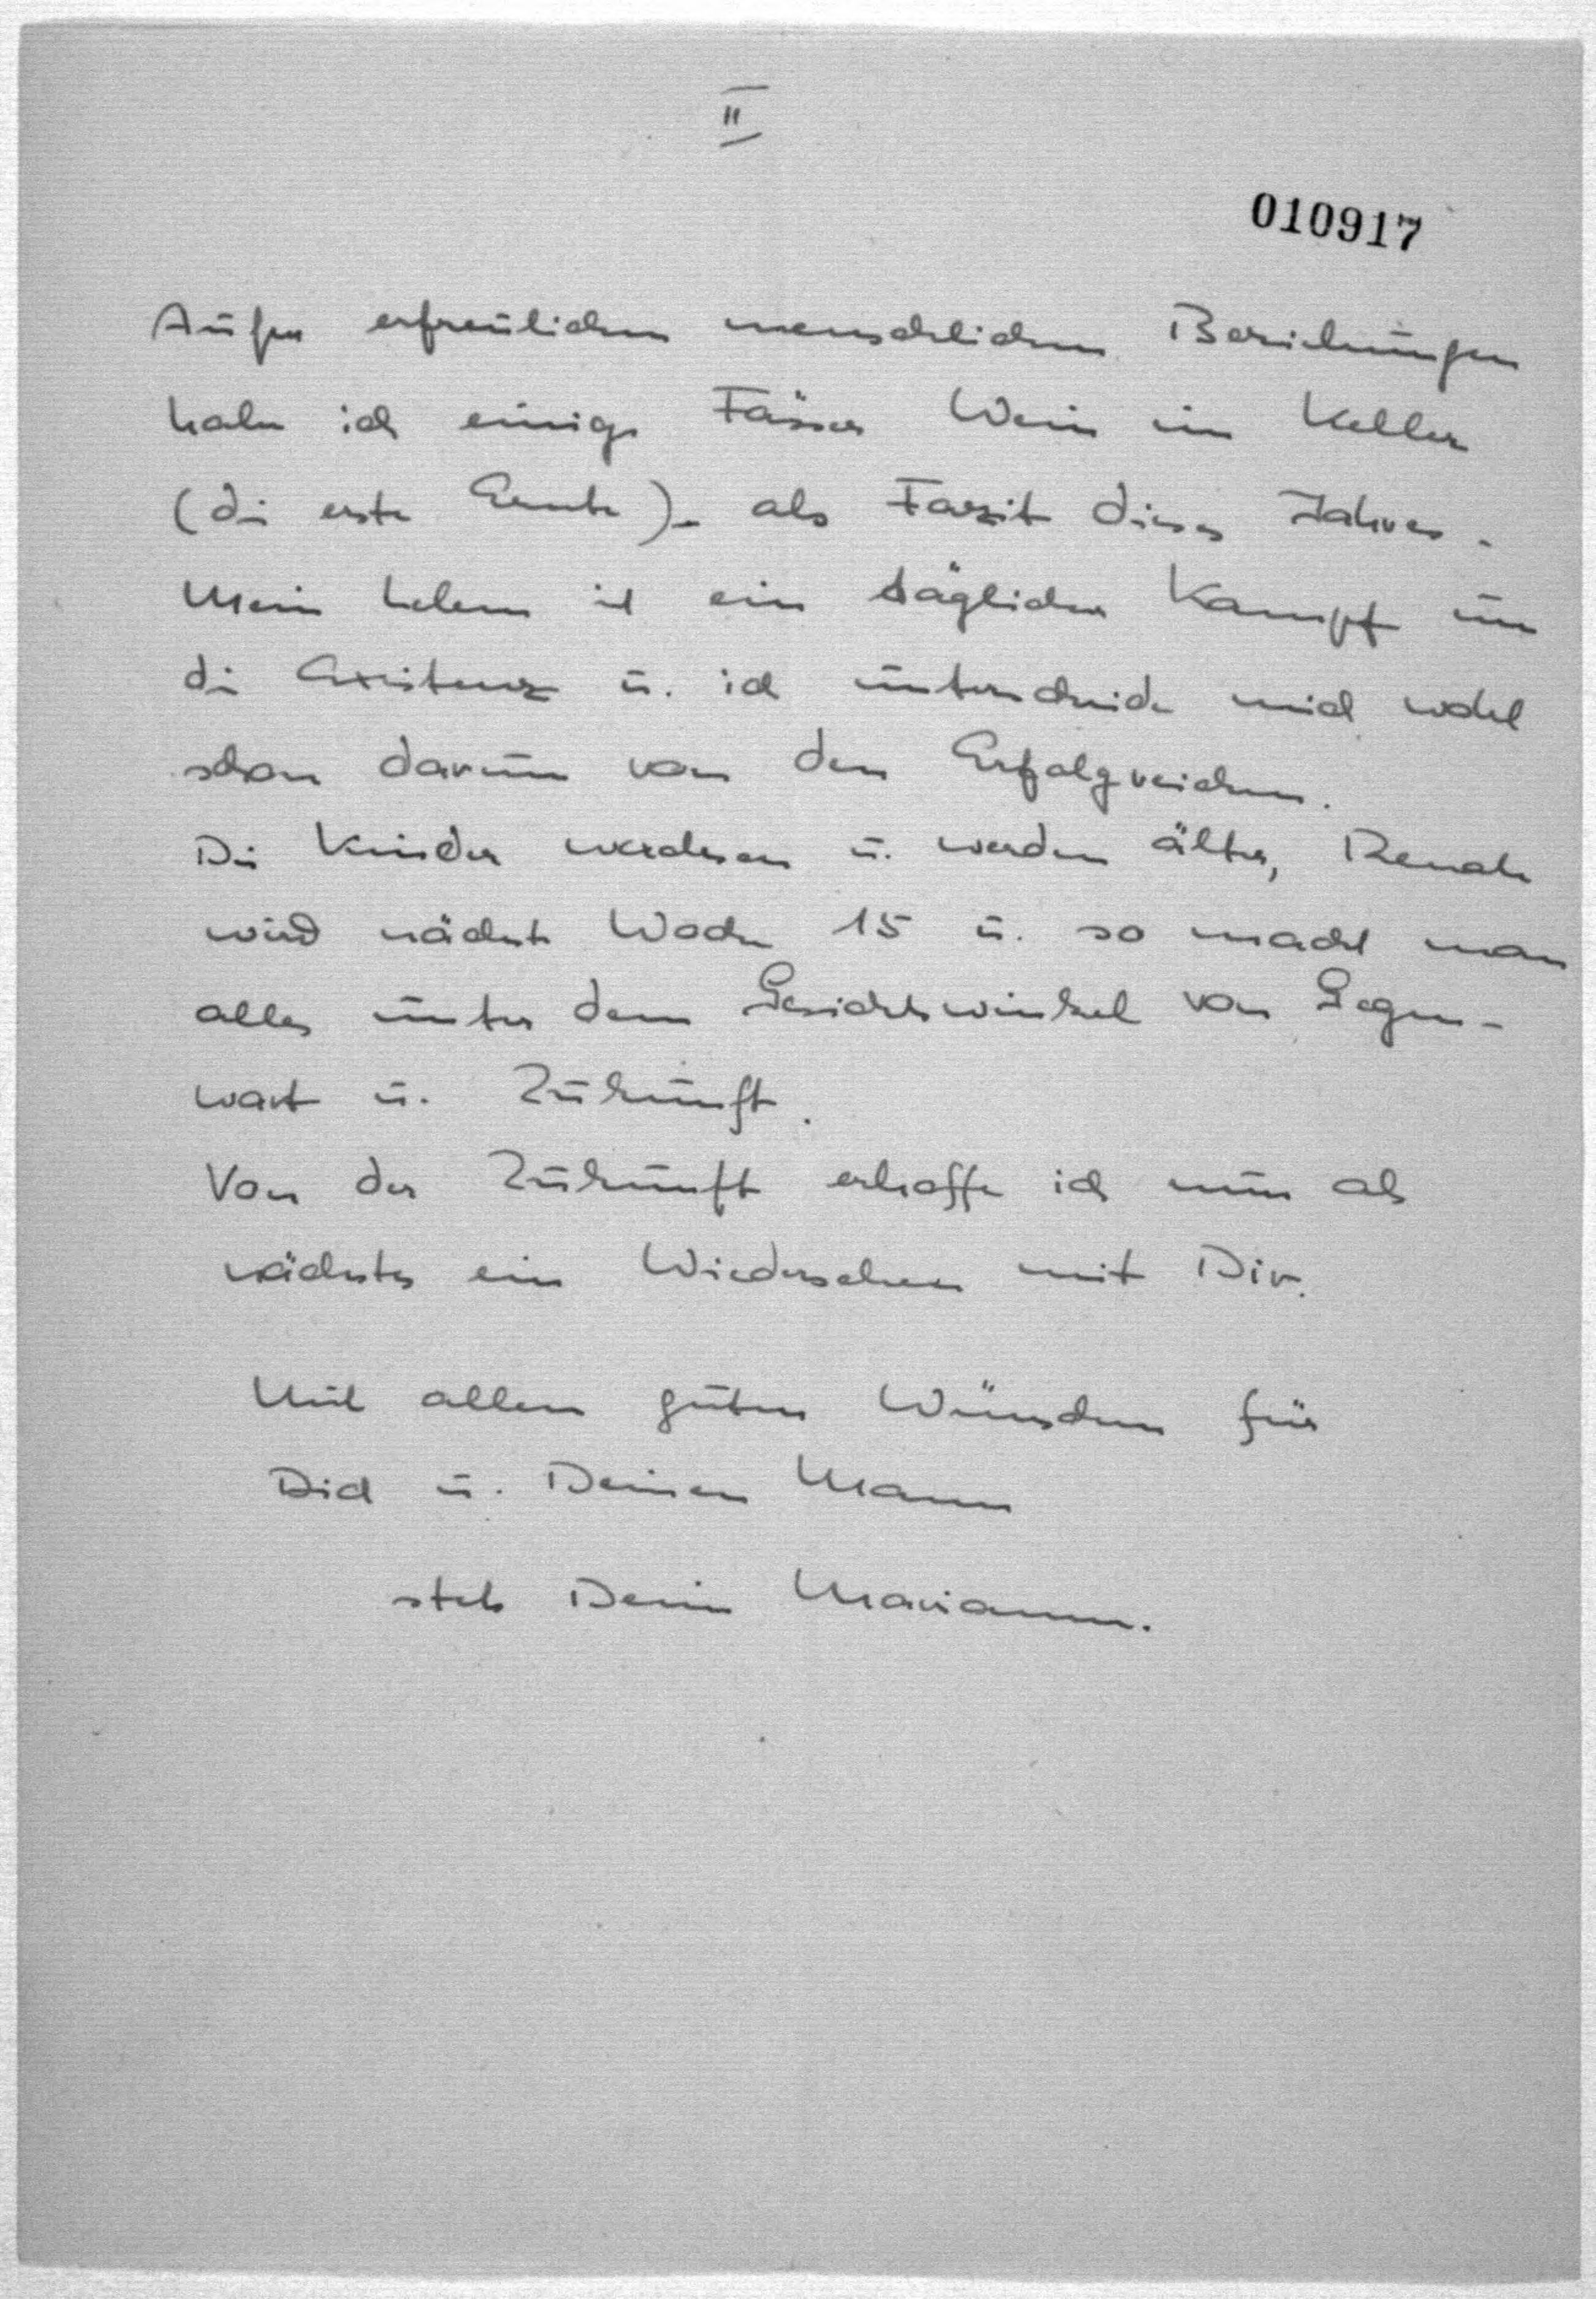 II
010917
Außer erfreulichen menschlichen Beziehungen
habe ich einige Fässer Wein im Keller
(die erste Ernte) - als Fazit dieses Jahres.
Mein Leben ist ein täglicher Kampf um
die Existenz u. ich unterscheide mich wohl
schon darum von den Erfolgreichen.
Die Kinder wachsen u. werden älter, Renate
wird nächste Woche 15 u. so macht man
alles unter dem Gesichtswinkel von Gegen-
wart u. Zukunft.
Von der Zukunft erhoffe ich nun als
nächstes ein Wiedersehen mit Dir.
Mit allen guten Wünschen für
Dich u. Deinen Mann
stets Deine Marianne.